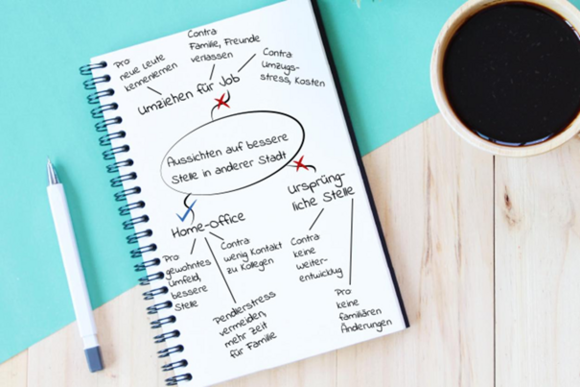 Pro
neue Leute
kennenlernen
Contra
Familie, Freunde
verlassen
Contra
Umzugs-
stress, Kosten
Umziehen für Job
Aussichten auf bessere
Stelle in anderer Stadt
Home-office
Pro
gewohntes
Umfeld,
bessere
Stelle
Contra
wenig Kontakt
zu Kollegen
Pendlerstress
vermeiden,
mehr Zeit
für Familie
Ursprüng-
liche Stelle
Contra
keine
weiter-
entwicklug
Pro
keine
familiären
Änderungen